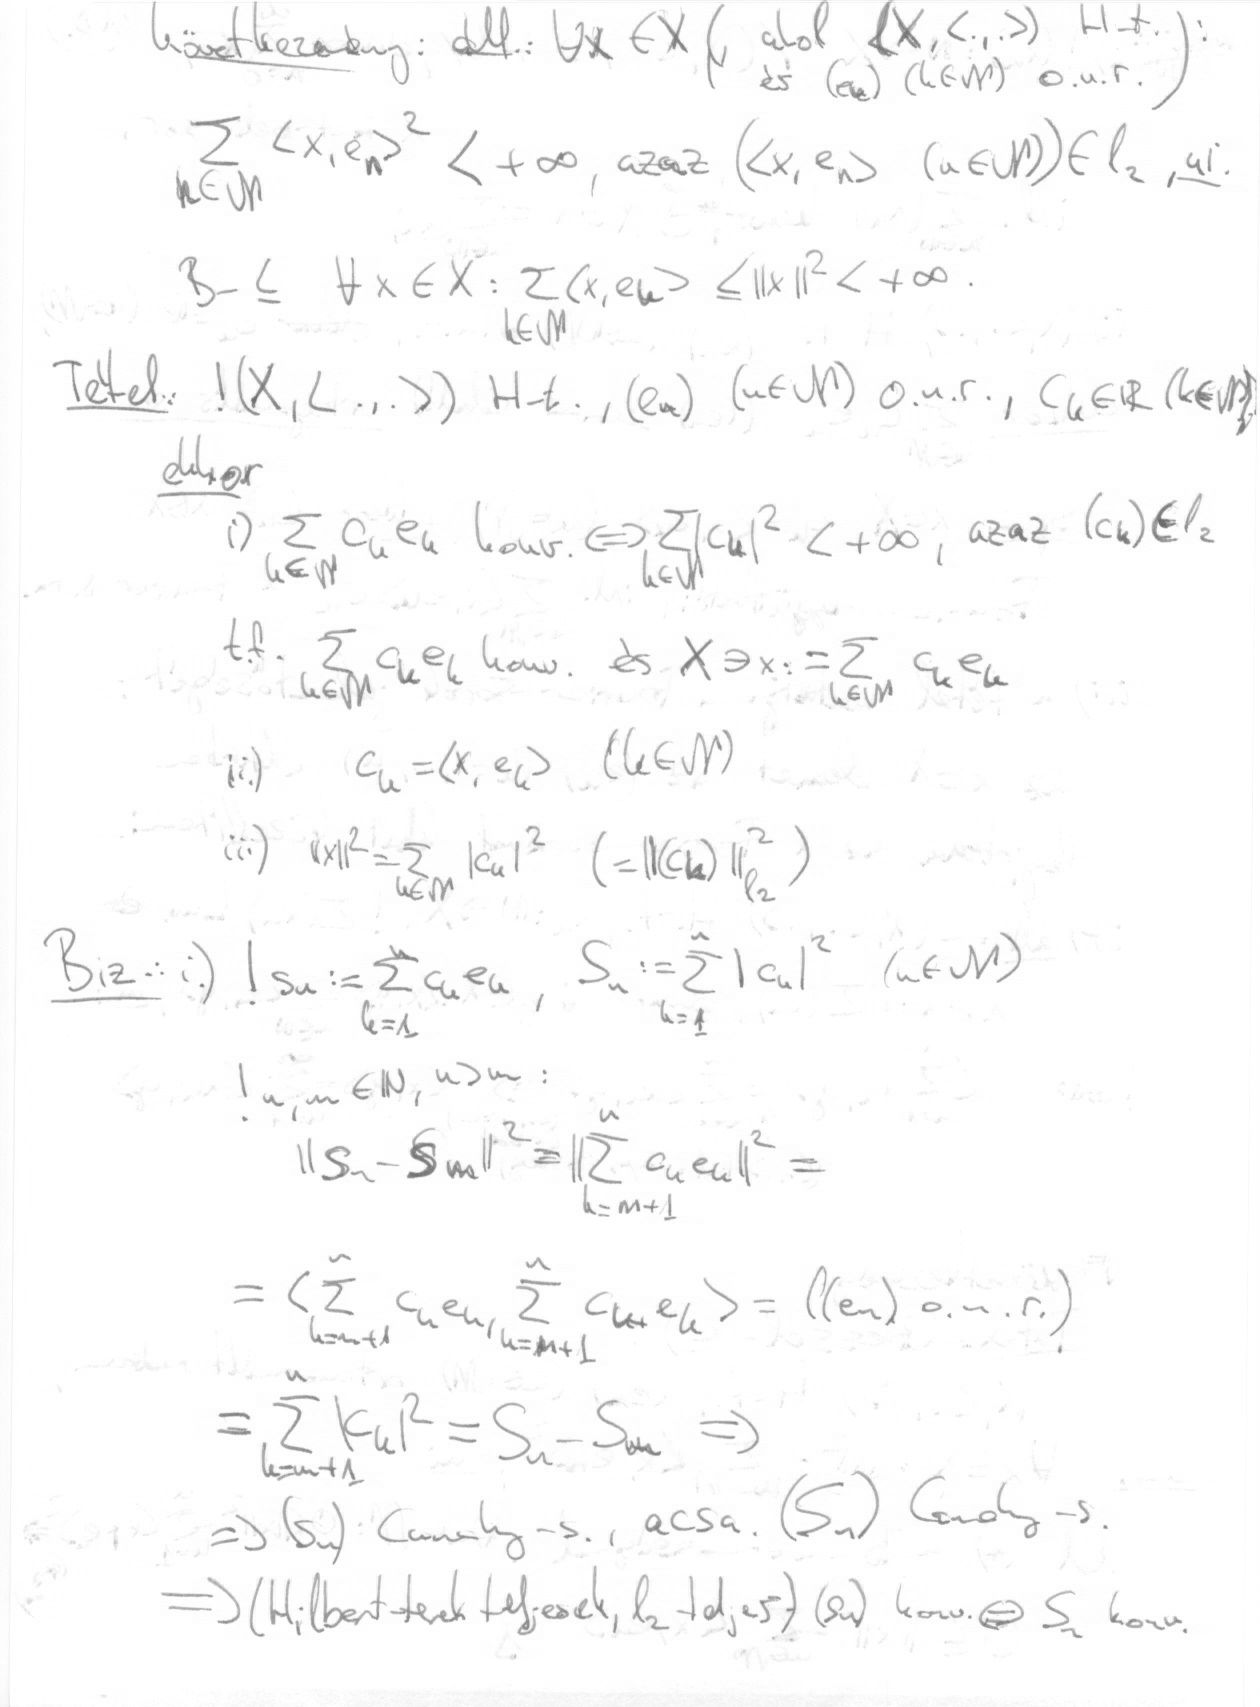 Következmény: ekk.: ∀x ∈ X (, ahol (X, <.,.>) H-t. és (eₖ) (k∈𝒩) o.n.r.):
∑_{n∈𝒩} <x, eₙ>² < +∞, azaz (<x, eₙ> (n∈𝒩)) ∈ l₂, ui.
B-≤ ∀x∈X: ∑_{k∈𝒩} <x, eₖ> ≤ ||x||² < +∞.
Tétel.: !(X, <.,.>) H-t., (eₙ) (n∈𝒩) o.n.r., cₖ∈ℝ (k∈𝒩),
ekkor
i) ∑_{k∈𝒩} cₖ eₖ konv. ⇔ ∑_{k∈𝒩} |cₖ|² < +∞, azaz (cₖ) ∈ l₂
t.f. ∑_{k∈𝒩} cₖ eₖ konv. és X ∋ x := ∑_{k∈𝒩} cₖ eₖ
ii.) cₖ = <x, eₖ> (k∈𝒩)
iii.) ||x||² = ∑_{k∈𝒩} |cₖ|² (= ||(cₖ)||²_{l₂})
Biz.: i.) ! sₙ := ∑_{k=1}^{n} cₖ eₖ, Sₙ := ∑_{k=1}^{n} |cₖ|² (n∈𝒩)
! n, m ∈ ℕ, n>m :
||sₙ - sₘ||² = ||∑_{k=m+1}^{n} cₖ eₖ||² =
= <∑_{k=m+1}^{n} cₖ eₖ, ∑_{k=m+1}^{n} cₖ eₖ> = ((eₙ) o.n.r.)
= ∑_{k=m+1}^{n} |cₖ|² = Sₙ - Sₘ ⇒
⇒ (sₙ) Cauchy-s., acsa. (Sₙ) Cauchy-s.
⇒ (Hilbert-terek teljesek, l₂ teljes) (sₙ) konv. ⇔ Sₙ konv.